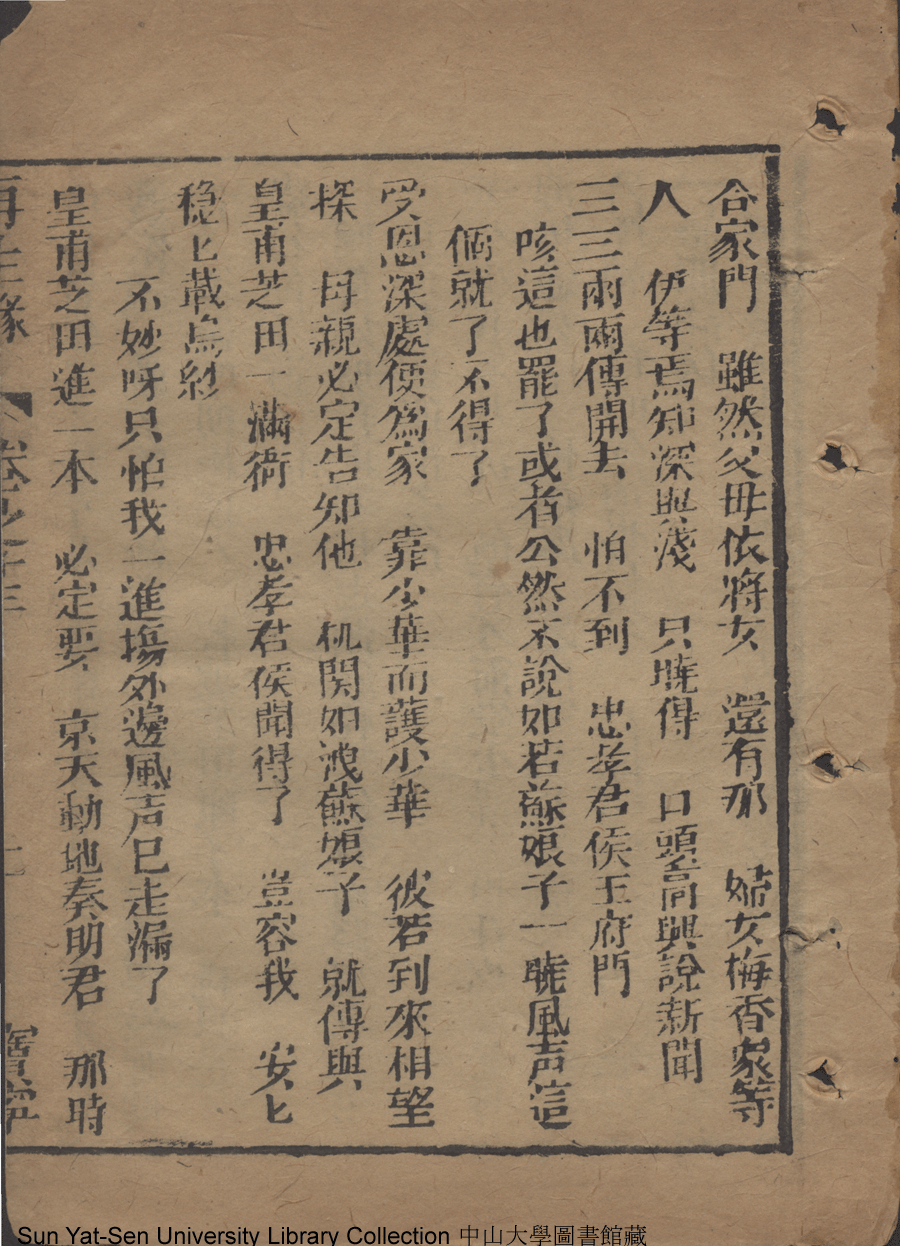 合家門　雖然父母依將女　還有那　婦女梅香家等
人　伊等焉知深與淺　只曉得　口頭高興說新聞
三三兩兩傳開去　怕不到　忠孝君侯王府門
咳這也罷了或者公然不說如若蘇娘子一曉風声這
個就了不得了
受恩深處便為家　靠少華而護少華　彼若到來相望
探　母親必定告知他　机関如洩蘇娘子　就傳與
皇甫芝田一滿衙　忠孝君侯聞得了　豈容我　安匕
稳匕蔵烏紗
不妙呀只怕我一進塲外邊風声已走漏了
皇甫芝田進一本　必定要　京天動地奏明君　那時
再生緣　卷之十三　寶寧
Sun Yat-Sen University Library Collection 中山大學圖書館藏